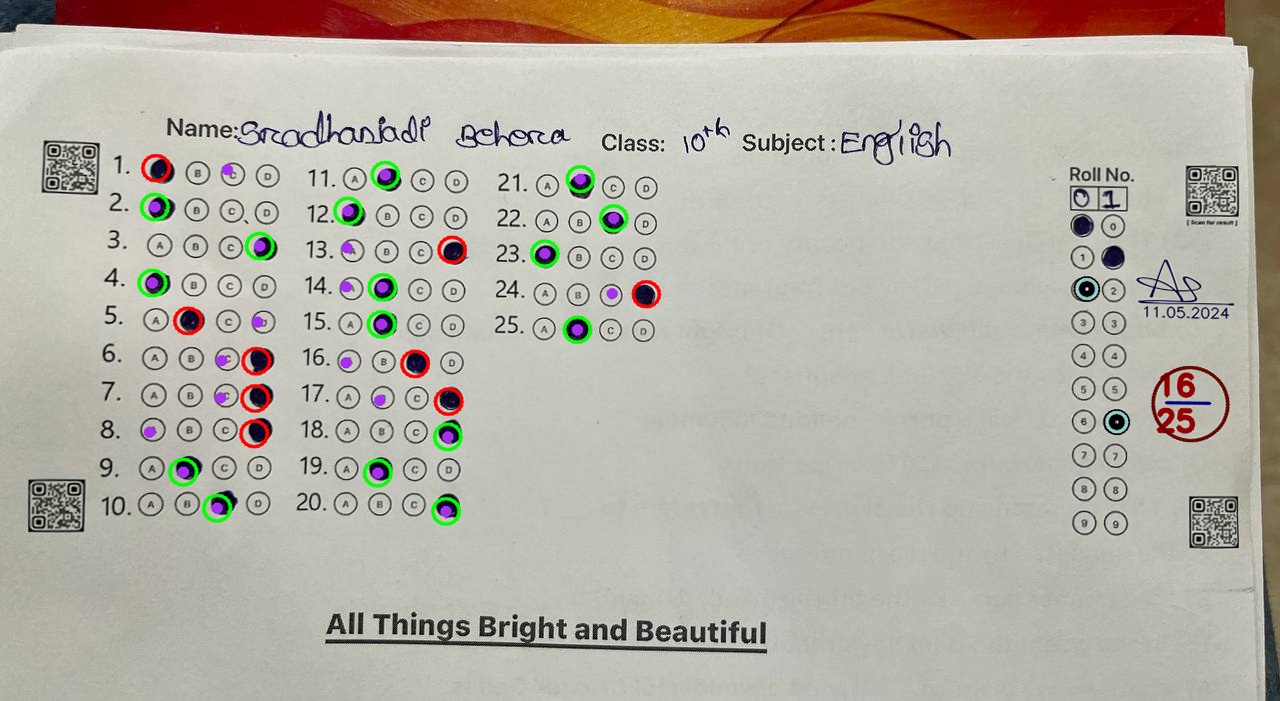 Name: Sradhanjadi Behera Class: 10th Subject: English
1. A B C D
2. A B C D
3. A B C D
4. A B C D
5. A B C D
6. A B C D
7. A B C D
8. A B C D
9. A B C D
10. A B C D
11. A B C D
12. A B C D
13. A B C D
14. A B C D
15. A B C D
16. A B C D
17. A B C D
18. A B C D
19. A B C D
20. A B C D
21. A B C D
22. A B C D
23. A B C D
24. A B C D
25. A B C D
Roll No.
0 1
0
1
2
3 3
4 4
5 5
6
7 7
8 8
9 9
[ Scan for result ]
11.05.2024
16
25
All Things Bright and Beautiful